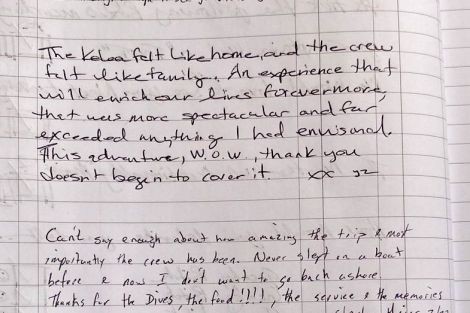 The Koloa felt like home, and the crew
felt like family. An experience that
will enrich our lives forevermore,
that was more spectacular and far
exceeded anything I had envisoned.
This adventure, W.O.W., thank you
doesn't begin to cover it. xx
Can't say enough about how amazing the trip & most
importantly the crew has been. Never slept on a boat
before & now I don't want to go back ashore.
Thanks for the Dives, the food!!!!, the service & the memories